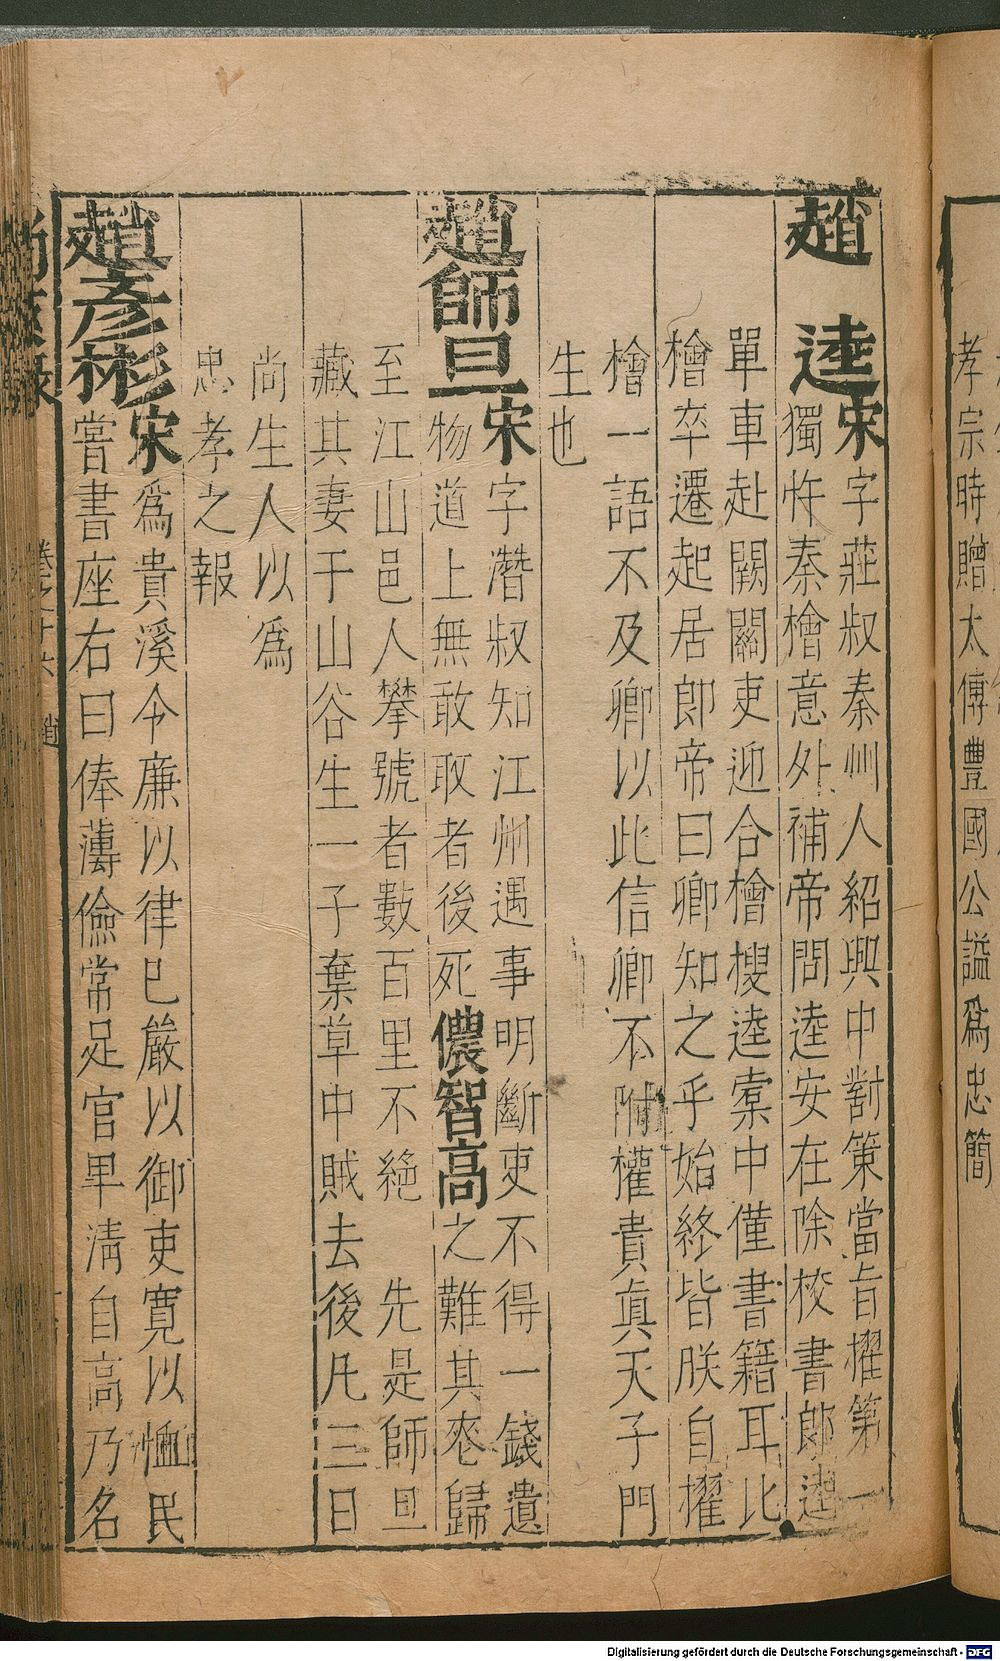 孝宗時贈太傅豊國公謚爲忠簡
趙逵
宋字莊叔秦州人紹興中對策當旨擢第一
獨忤秦檜意外補帝問逵安在除校書郎逵
單車赴闕關吏迎合檜搜逵橐中僅書籍耳比
檜卒遷起居郎帝曰卿知之乎始終皆朕自擢
檜一語不及卿以此信卿不附權貴真天子門
生也
趙師旦
宋字潛叔知江州遇事明斷吏不得一錢遺
物道上無敢取者後死儂智高之難其喪歸
至江山邑人攀號者數百里不絕 先是師旦
藏其妻于山谷生一子棄草中賊去後凡三日
尚生人以爲
忠孝之報
趙彥彬
宋爲貴溪令廉以律已嚴以御吏寬以恤民
嘗書座右曰俸薄儉常足官卑清自高乃名
卷之十六 趙
Digitalisierung gefördert durch die Deutsche Forschungsgemeinschaft - DFG